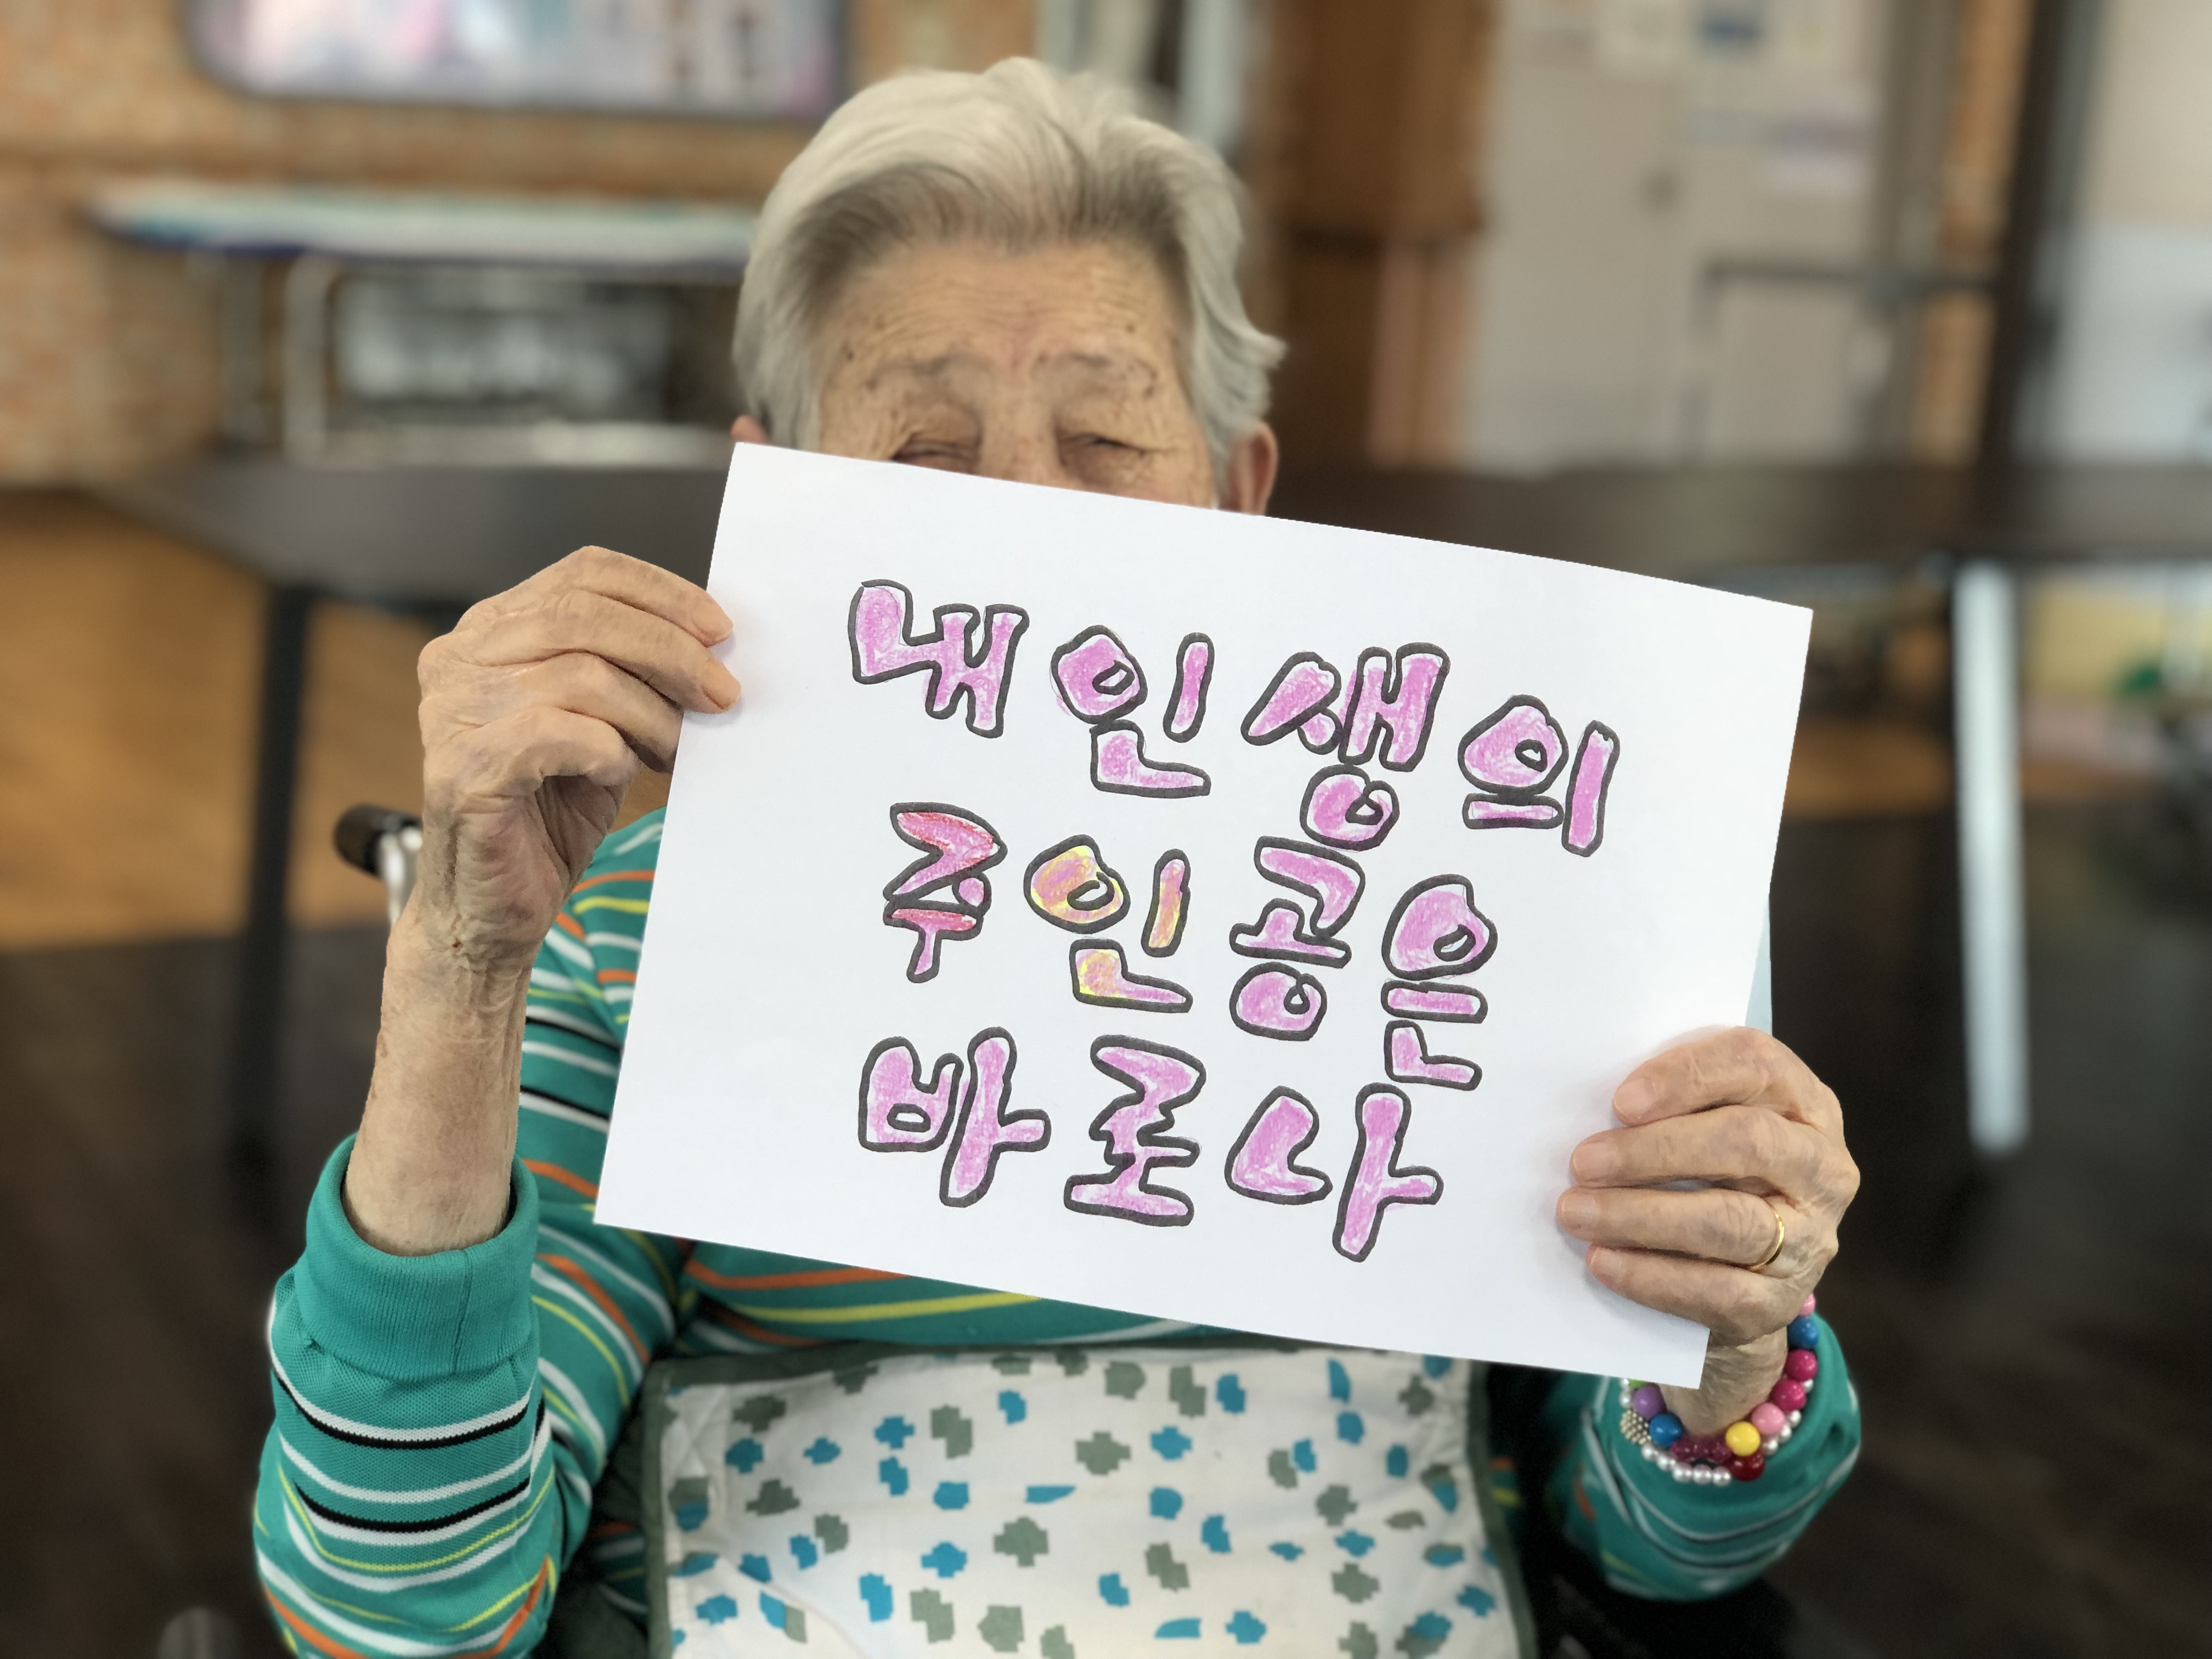 내 인생의
주인공은
바로 나